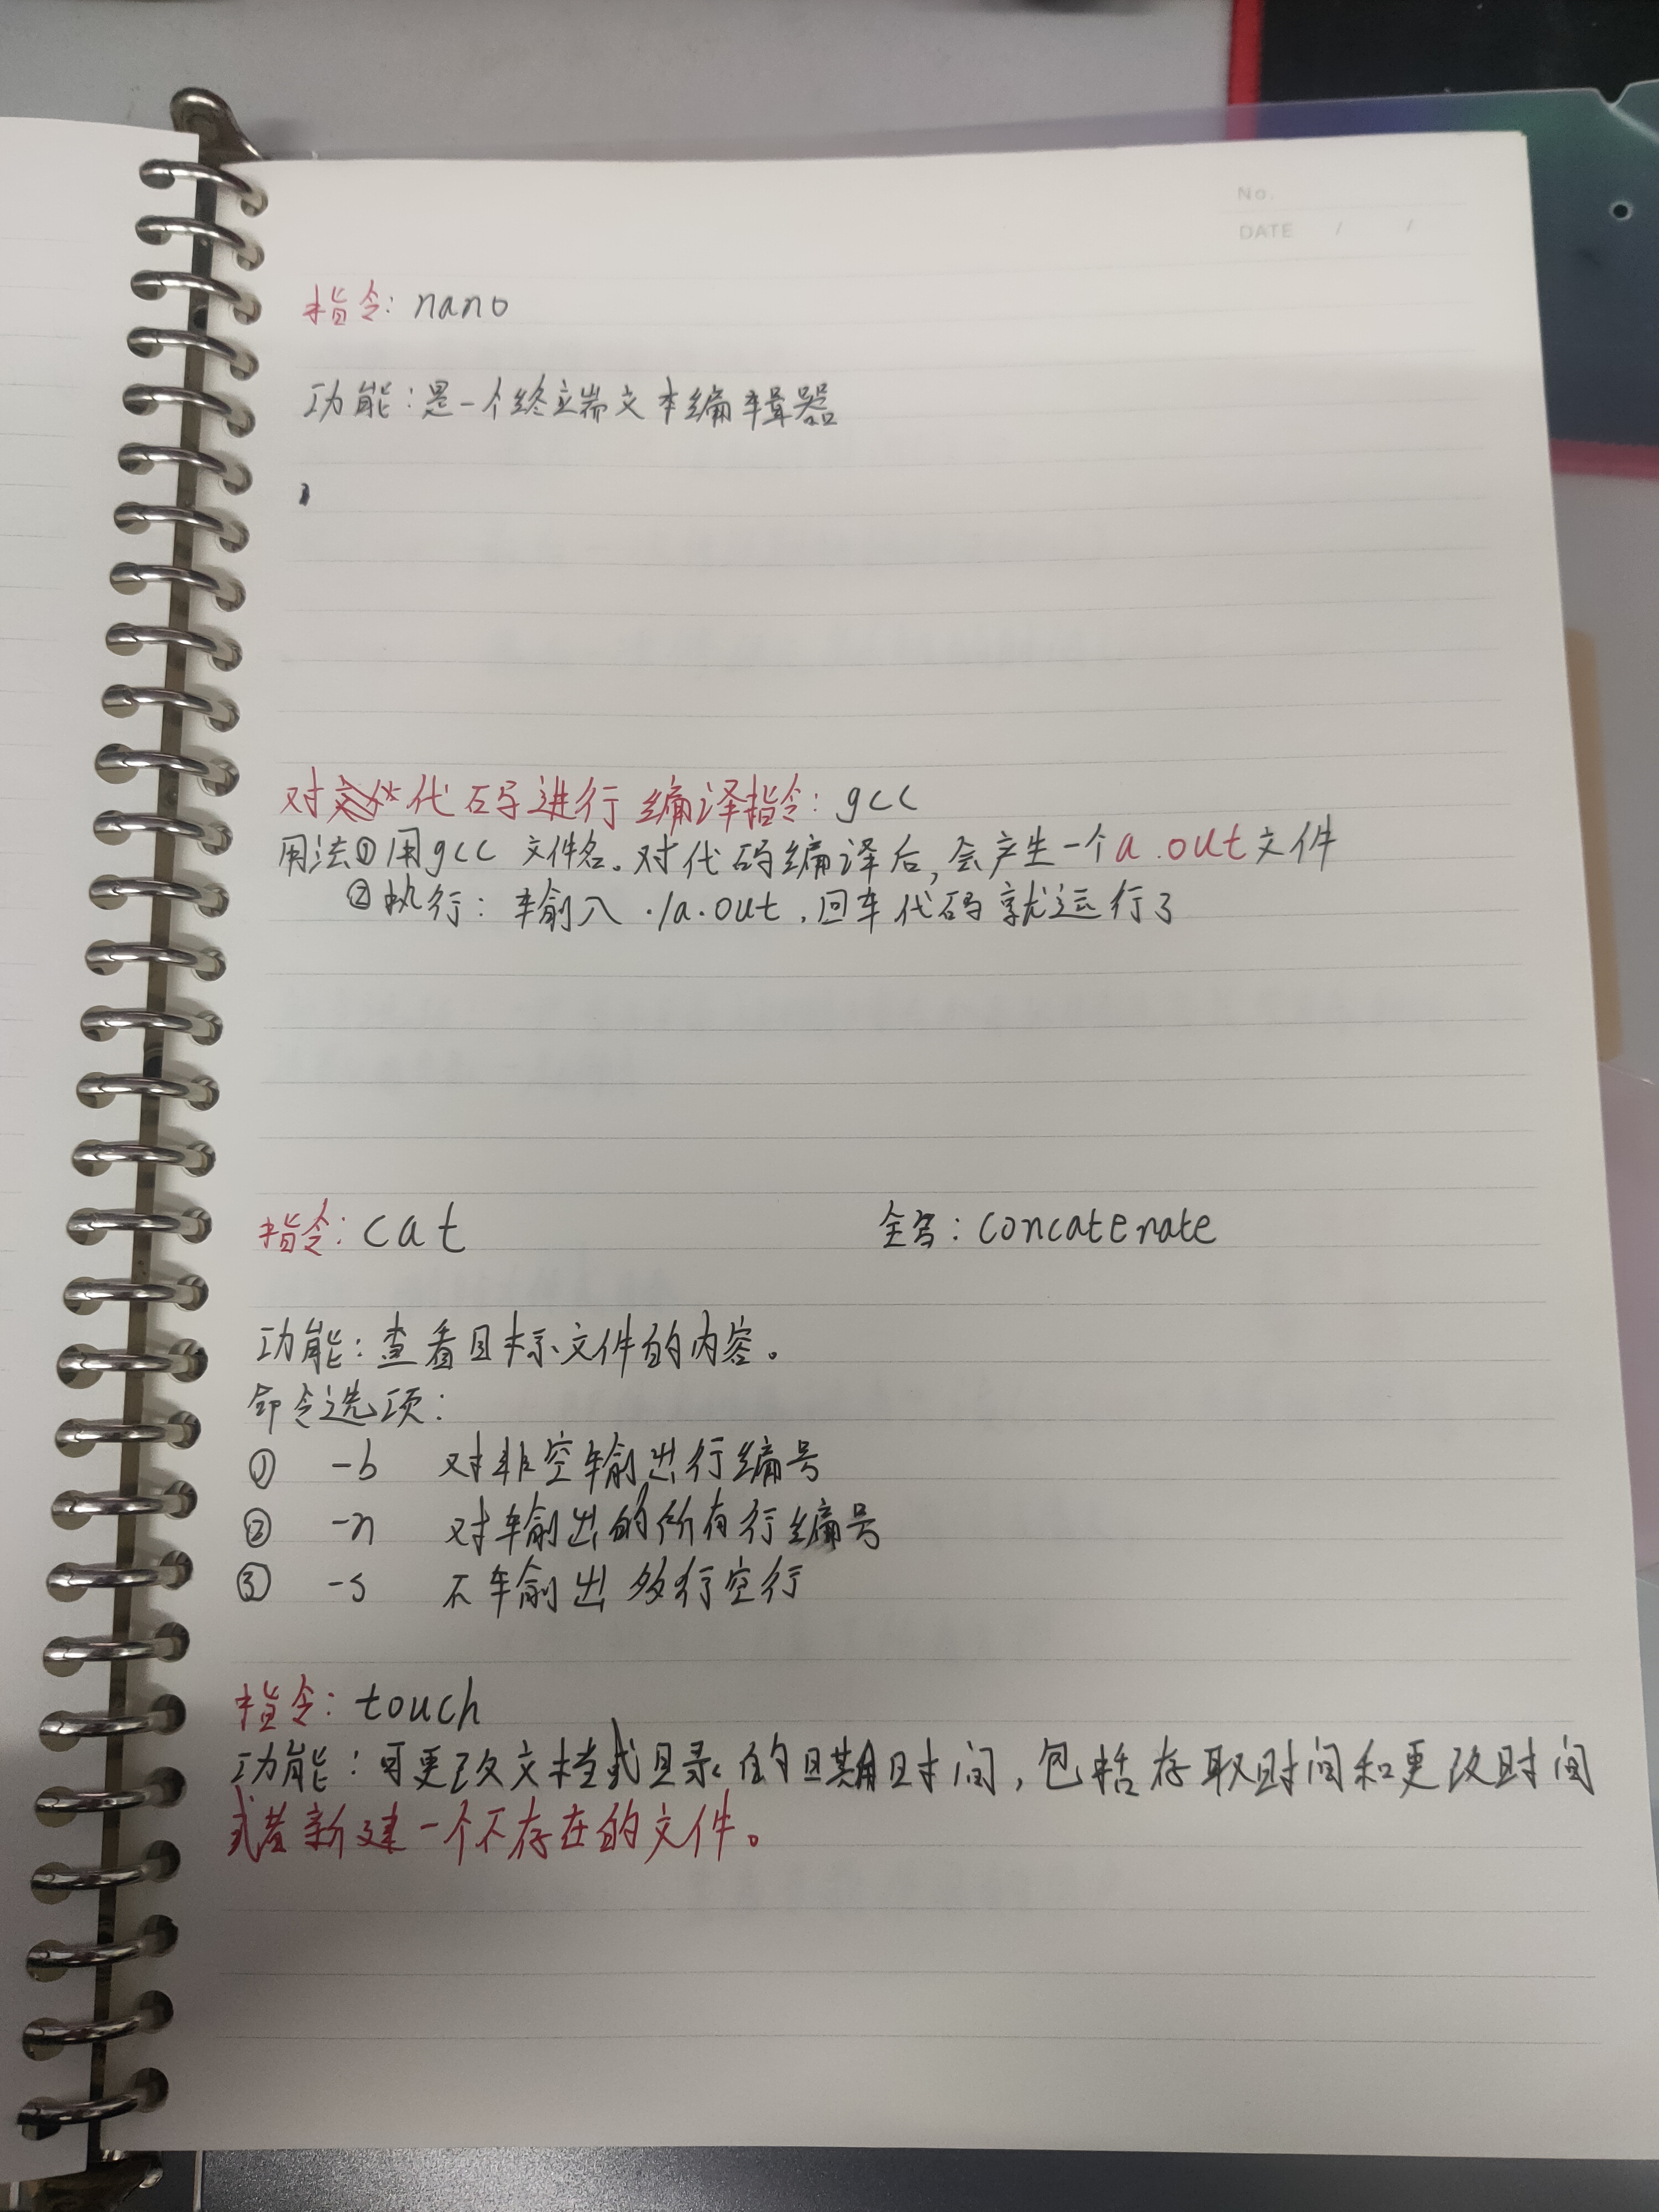 No.
DATE / /
指令: nano
功能:是一个终端文本编辑器
对代码进行编译指令: gcc
用法①用gcc 文件名。对代码编译后,会产生一个a.out文件
②执行: 输入 ./a.out,回车代码就运行了
指令: cat 全写: concatenate
功能:查看目标文件的内容。
命令选项:
① -b 对非空输出行编号
② -n 对输出的所有行编号
③ -s 不输出多行空行
指令: touch
功能:可更改文档或目录的日期时间,包括存取时间和更改时间
或者新建一个不存在的文件。